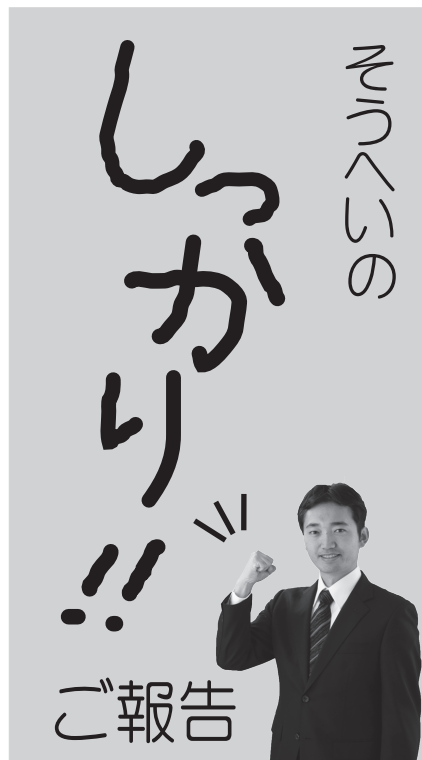 そうへいの
しっかり!!
ご報告